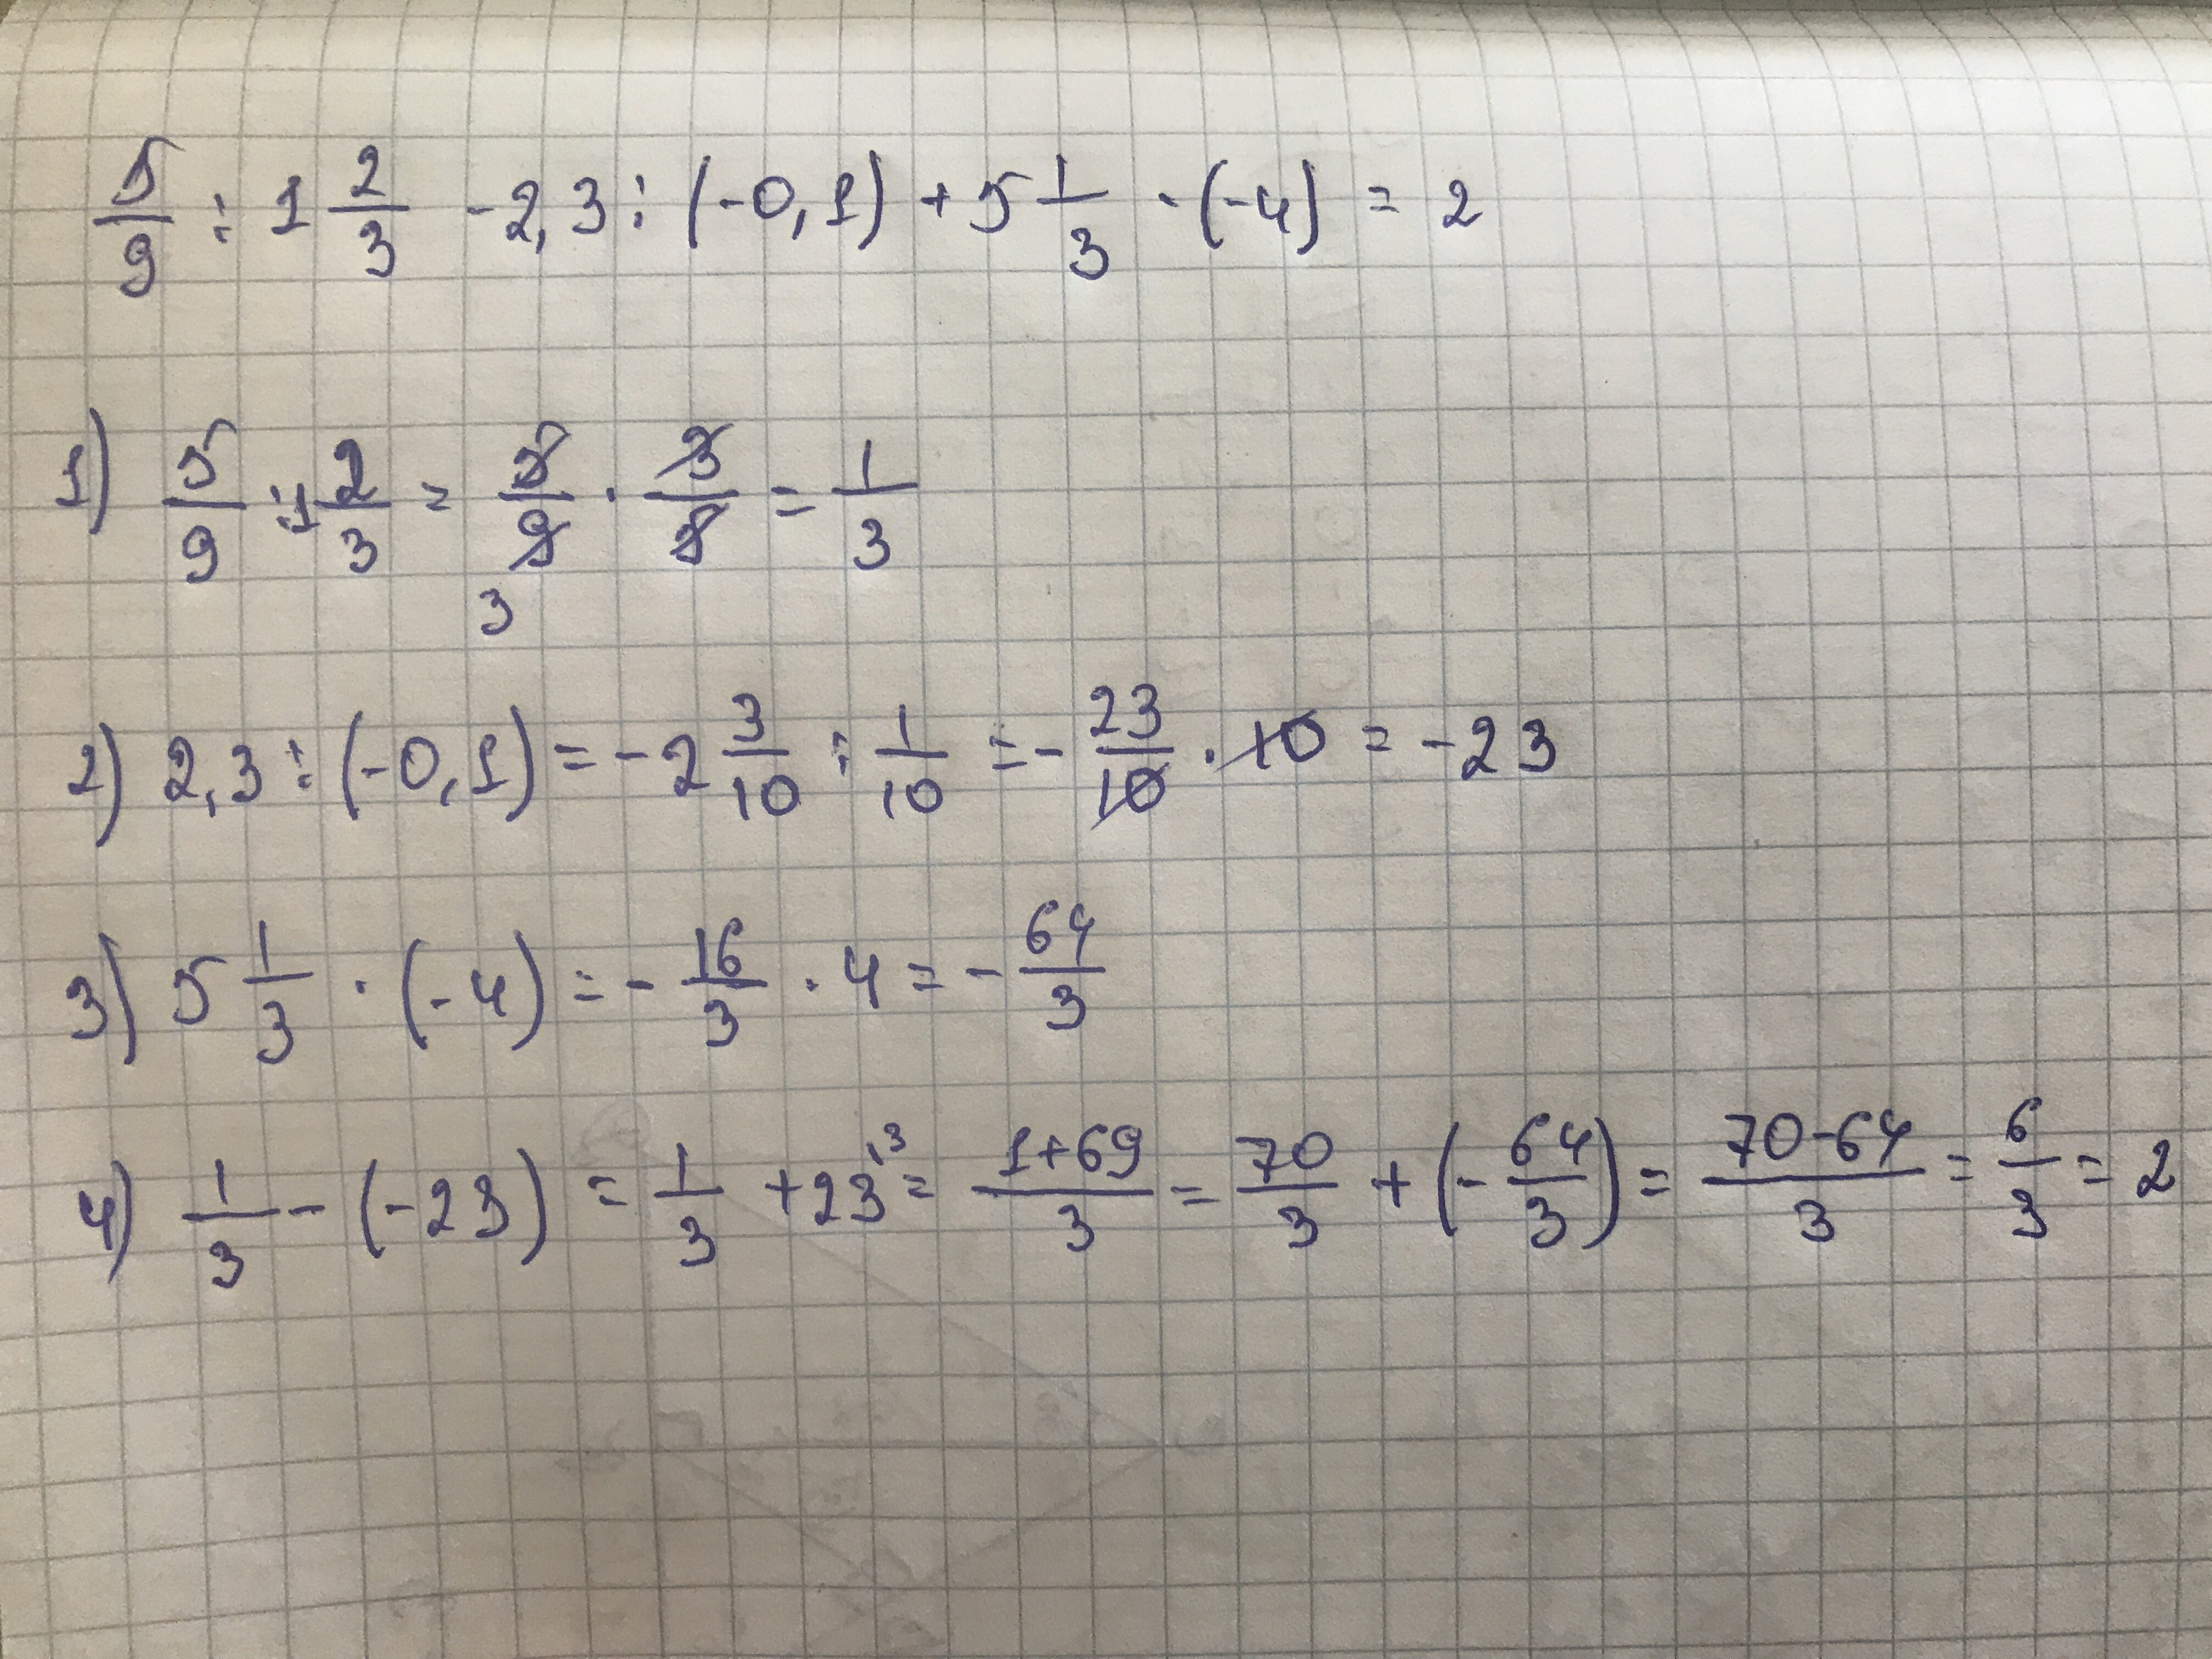 5/9 : 1 2/3 - 2,3 : (-0,1) + 5 1/3 · (-4) = 2
1) 5/9 : 1 2/3 = 5/9 · 3/5 = 1/3
3
2) 2,3 : (-0,1) = -2 3/10 : 1/10 = -23/10 · 10 = -23
3) 5 1/3 · (-4) = -16/3 · 4 = -64/3
4) 1/3 - (-23) = 1/3 + 23^{\3} = 1+69/3 = 70/3 + (-64/3) = 70-64/3 = 6/3 = 2